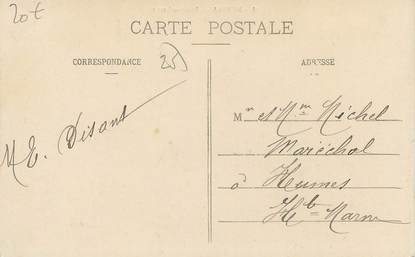 20t
CARTE POSTALE
CORRESPONDANCE
20t
ADRESSE
M E. Disant
Mr et Mm Michel
Maréchal
à Humes
Hte Marne